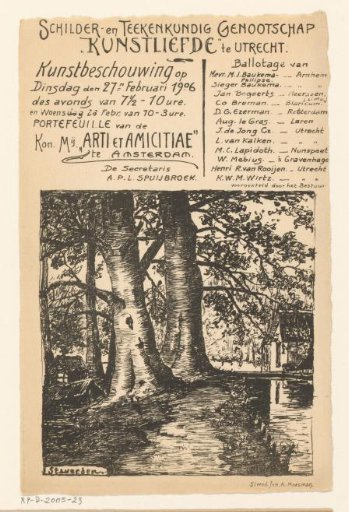 SCHILDER- en TEEKENKUNDIG GENOOTSCHAP
"KUNSTLIEFDE" te UTRECHT.
Kunstbeschouwing op
Dinsdag den 27sten Februari 1906
des avonds van 7½ - 10 ure.
en Woensdag 28 Febr. van 10-3 ure.
PORTEFEUILLE van de
Kon. Mij. "ARTI ET AMICITIAE"
te AMSTERDAM.
De Secretaris
A.P.L. SPUIJBROEK.
Ballotage van
Mevr. M.I. Baukema- Philipse. Arnhem
Sieger Baukema. " "
Jan Bogaerts
Co Breman. Blaricum
D.G. Ezerman. Rotterdam
Aug. le Gras. Laren
J. de Jong Cz. Utrecht
L. van Kalken. "
M.C. Lapidoth. Nunspeet
W. Mebius. 's Gravenhage
Henri R. van Rooijen. Utrecht
K.W.M. Wirtz. " "
voorgesteld door het Bestuur
Staverden.
XP-D-2003-23